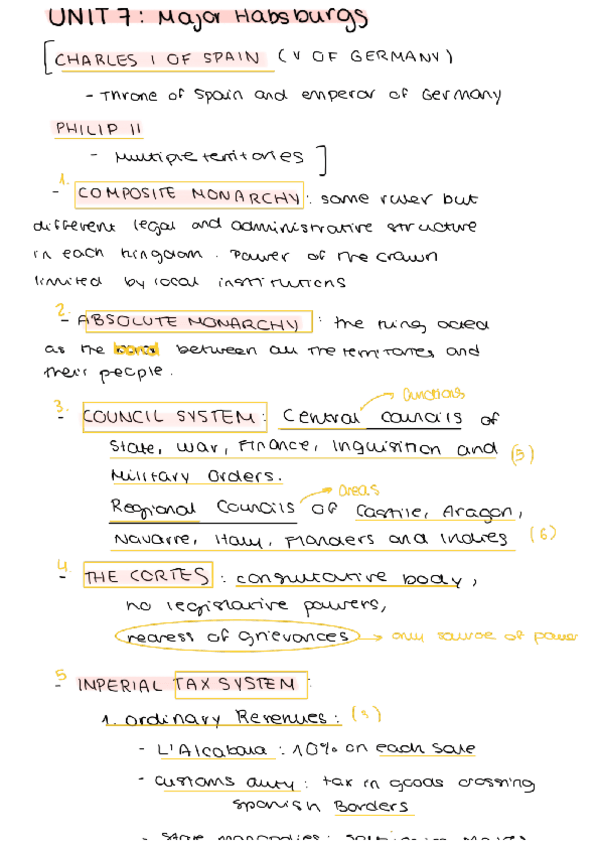 UNIT 7: Major Habsburgs
[CHARLES I OF SPAIN (V OF GERMANY)
- Throne of Spain and emperor of Germany
PHILIP II
- Multiple territories]
1.
- COMPOSITE MONARCHY: same ruler but
different legal and administrative structure
in each kingdom. Power of the crown
limited by local institutions
2.
- ABSOLUTE MONARCHY: the king acted
as the bond between all the territories and
their people.
functions
3.
- COUNCIL SYSTEM: Central councils of
State, war, Finance, Inquisition and (5)
Military Orders.
areas
Regional Councils of Castile, Aragon,
Navarre, Italy, Flanders and Indies (6)
4.
- THE CORTES: consultative body,
no legislative powers,
redress of grievances → only source of power
5
- INPERIAL TAX SYSTEM:
1. Ordinary Revenues:
- L'Alcabala: 10% on each sale
- customs duty: tax in goods crossing
Spanish Borders
- State monopolies: